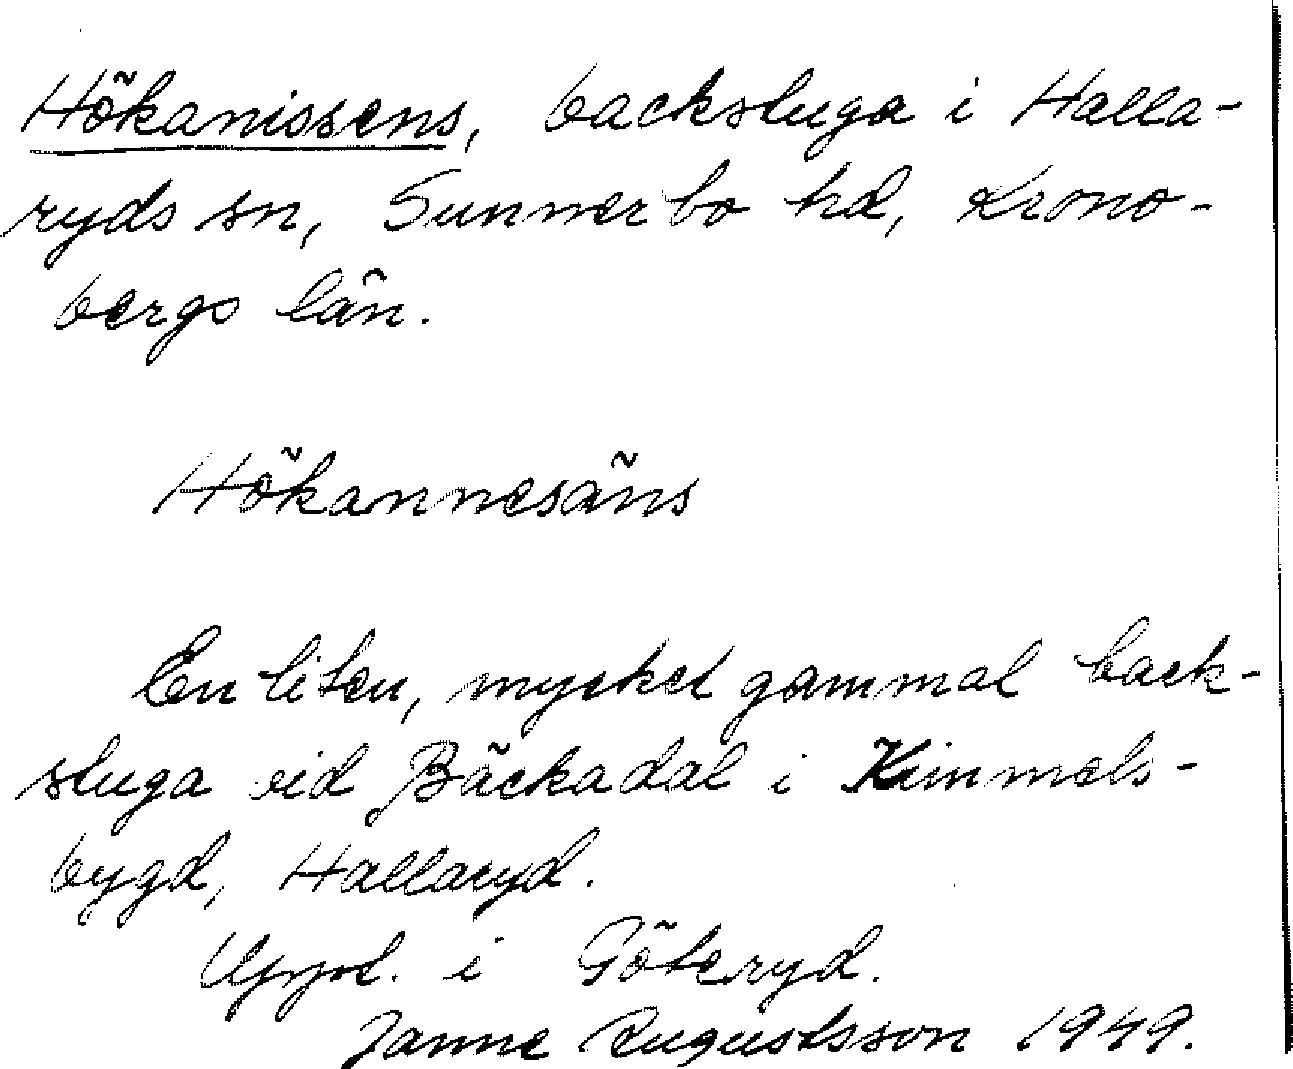 Hökanissens, backstuga i Halla-
ryds sn, Sunnerbo hd, Krono-
bergs län.
Hökannesäns
En liten, mycket gammal back-
stuga vid Bäckadal i Kimmels-
bygd, Hallaryd.
Uppt. i Göteryd.
Janne Augustsson 1949.